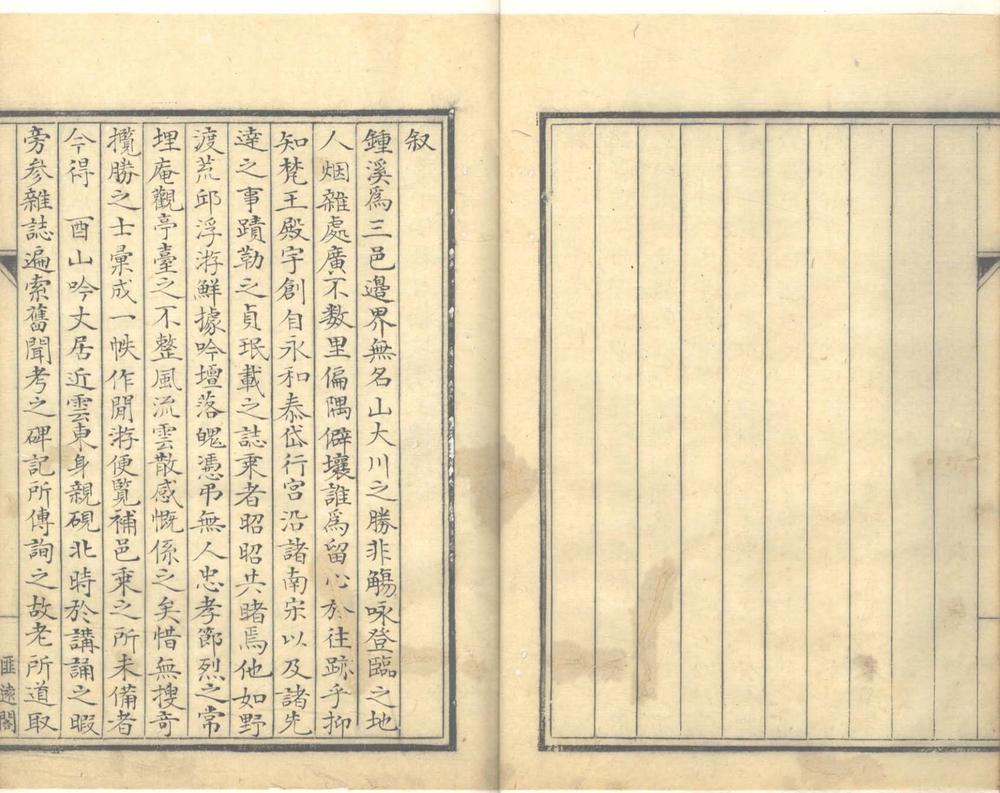 叙
鍾溪爲三邑邉界無名山大川之勝非觴咏登臨之地
人烟雜處廣不数里偏隅僻壤誰爲留心於往跡乎抑
知梵王殿宇創自永和泰岱行宫沿諸南宋以及諸先
達之事蹟勒之貞珉載之誌乘者昭昭共睹焉他如野
渡荒邱浮游鮮據吟壇落魄憑弔無人忠孝節烈之常
埋庵觀亭臺之不整風流雲散感慨係之矣惜無搜奇
攬勝之士彙成一帙作閒游便覧補邑乘之所未備者
今得 酉山吟丈居近雲東身親硯北時於講誦之暇
旁参雜誌遍索舊聞考之碑記所傳詢之故老所道取
匪遠閣